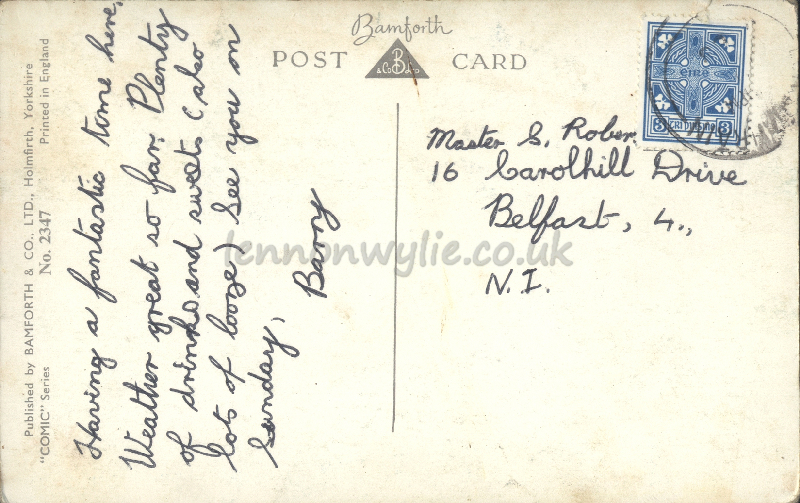 Published by BAMFORTH & CO., LTD., Holmfirth, Yorkshire
"COMIC" Series No. 2347 Printed in England
Bamforth
POST CARD
& Co B Ltd
Having a fantastic time here.
Weather great so far. Plenty
of drinks and sweets (also
lots of booze) See you on
Sunday,
Barry
Master S. Rober
16 Carolhill Drive
Belfast, 4.,
N.I.
éire
3 3
lennonwylie.co.uk